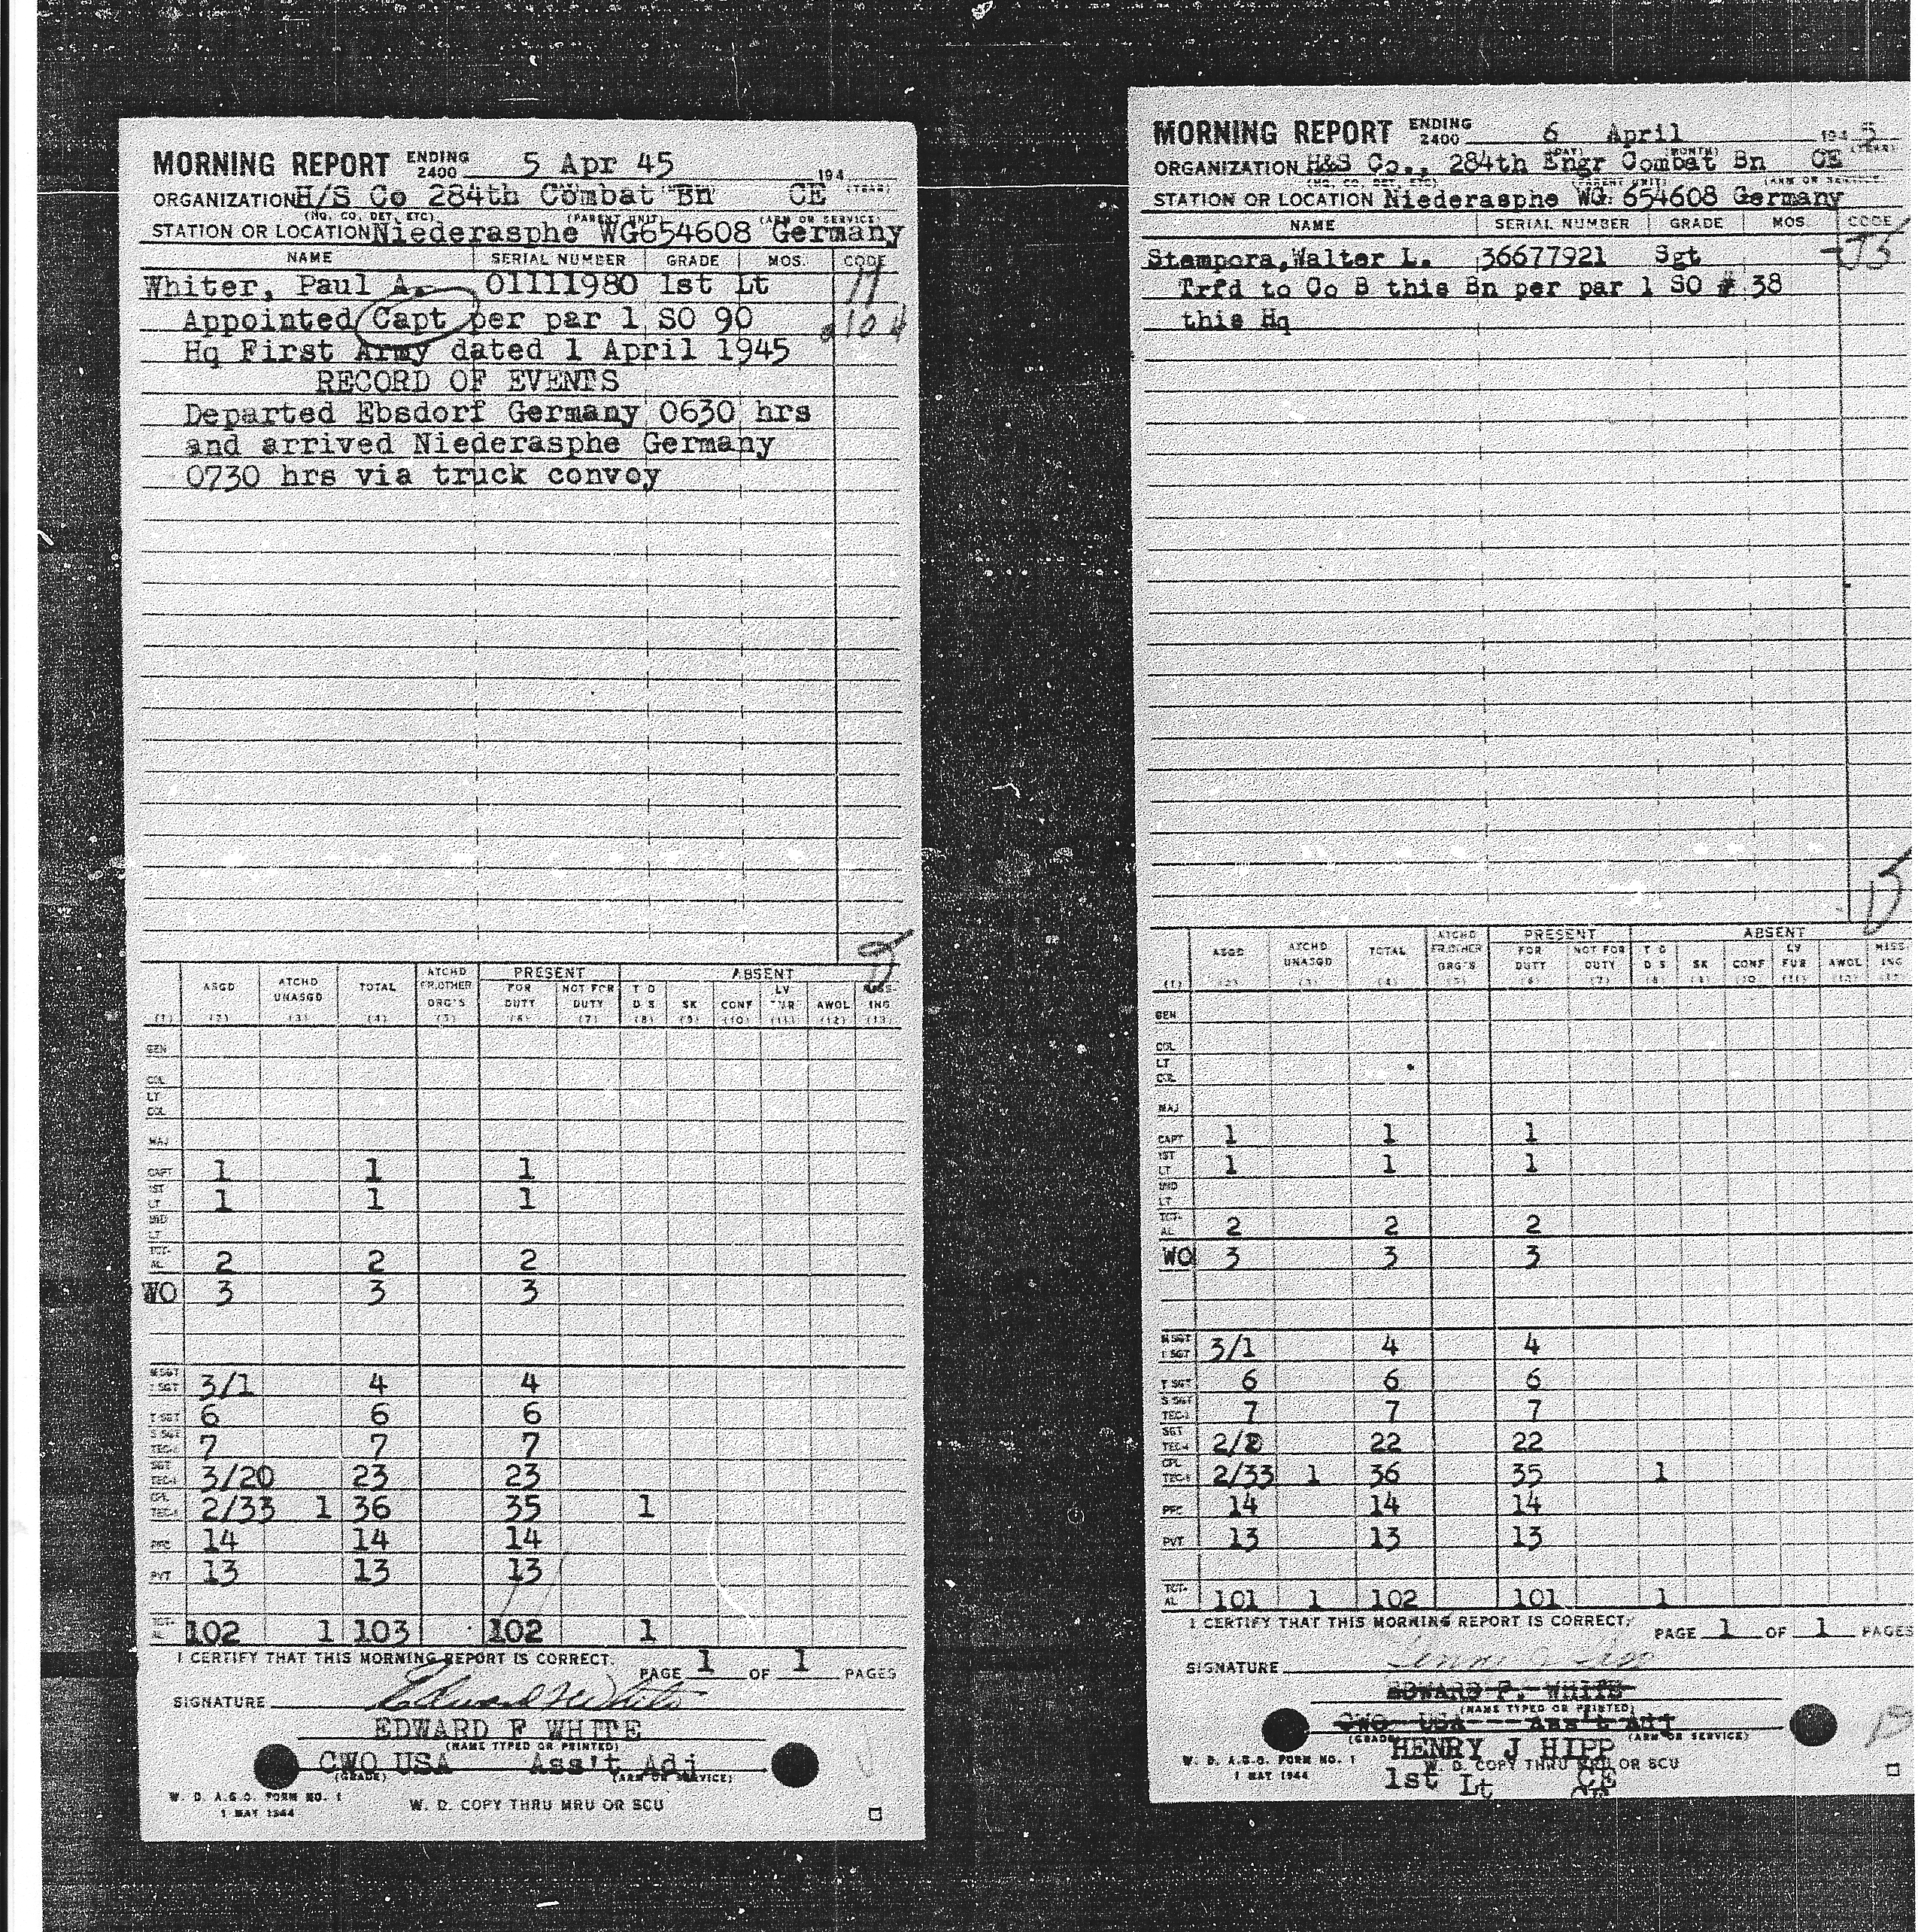 MORNING REPORT ENDING 2400 5 Apr 45 194
(YEAR)
ORGANIZATION H/S Co 284th Combat Bn CE
(NO. CO, DET, ETC) (PARENT UNIT) (ARM OR SERVICE)
STATION OR LOCATION Niederasphe WG654608 Germany
NAME SERIAL NUMBER GRADE MOS. CODE
Whiter, Paul A. 01111980 1st Lt
Appointed Capt per par 1 SO 90
Hq First Army dated 1 April 1945
RECORD OF EVENTS
Departed Ebsdorf Germany 0630 hrs
and arrived Niederasphe Germany
0730 hrs via truck convoy
ASGD ATCHD UNASGD TOTAL ATCHD FR.OTHER ORG'S PRESENT FOR DUTY NOT FOR DUTY ABSENT T D D S SK CONF LV FUR AWOL MISS-ING
(1) (2) (3) (4) (5) (6) (7) (8) (9) (10) (11) (12) (13)
GEN
COL
LT COL
MAJ
CAPT 1 1 1
1ST LT 1 1 1
2ND LT
TOT-AL 2 2 2
WO 3 3 3
M SGT 1 SGT 3/1 4 4
T SGT 6 6 6
S SGT TEC-3 7 7 7
SGT TEC-4 3/20 23 23
CPL TEC-5 2/33 1 36 35 1
PFC 14 14 14
PVT 13 13 13
TOT-AL 102 1 103 102 1
I CERTIFY THAT THIS MORNING REPORT IS CORRECT.
PAGE 1 OF 1 PAGES
SIGNATURE Edward F White
EDWARD F WHITE
(NAME TYPED OR PRINTED)
CWO USA Ass't Adj
(GRADE) (ARM OR SERVICE)
W. D. A.G.O. FORM NO. 1
1 MAY 1944
W. D. COPY THRU MRU OR SCU
MORNING REPORT ENDING 2400 6 April 1945
(DAY) (MONTH) (YEAR)
ORGANIZATION H&S Co., 284th Engr Combat Bn CE
(NO. CO, DET, ETC) (PARENT UNIT) (ARM OR SERVICE)
STATION OR LOCATION Niederasphe WG 654608 Germany
NAME SERIAL NUMBER GRADE MOS. CODE
Stampora, Walter L. 36677921 Sgt
Trfd to Co B this Bn per par 1 SO # 38
this Hq
ASGD ATCHD UNASGD TOTAL ATCHD FR.OTHER ORG'S PRESENT FOR DUTY NOT FOR DUTY ABSENT T D D S SK CONF LV FUR AWOL MISS-ING
(1) (2) (3) (4) (5) (6) (7) (8) (9) (10) (11) (12) (13)
GEN
COL
LT COL
MAJ
CAPT 1 1 1
1ST LT 1 1 1
2ND LT
TOT-AL 2 2 2
WO 3 3 3
M SGT 1 SGT 3/1 4 4
T SGT 6 6 6
S SGT TEC-3 7 7 7
SGT TEC-4 22 22
CPL TEC-5 2/33 1 36 35 1
PFC 14 14 14
PVT 13 13 13
TOT-AL 101 1 102 101 1
I CERTIFY THAT THIS MORNING REPORT IS CORRECT.
PAGE 1 OF 1 PAGES
SIGNATURE
EDWARD F. WHITE
(NAME TYPED OR PRINTED)
CWO USA Ass't Adj
(GRADE) (ARM OR SERVICE)
HENRY J HIPP
W. D. A.G.O. FORM NO. 1
1 MAY 1944
W. D. COPY THRU MRU OR SCU
1st Lt CE